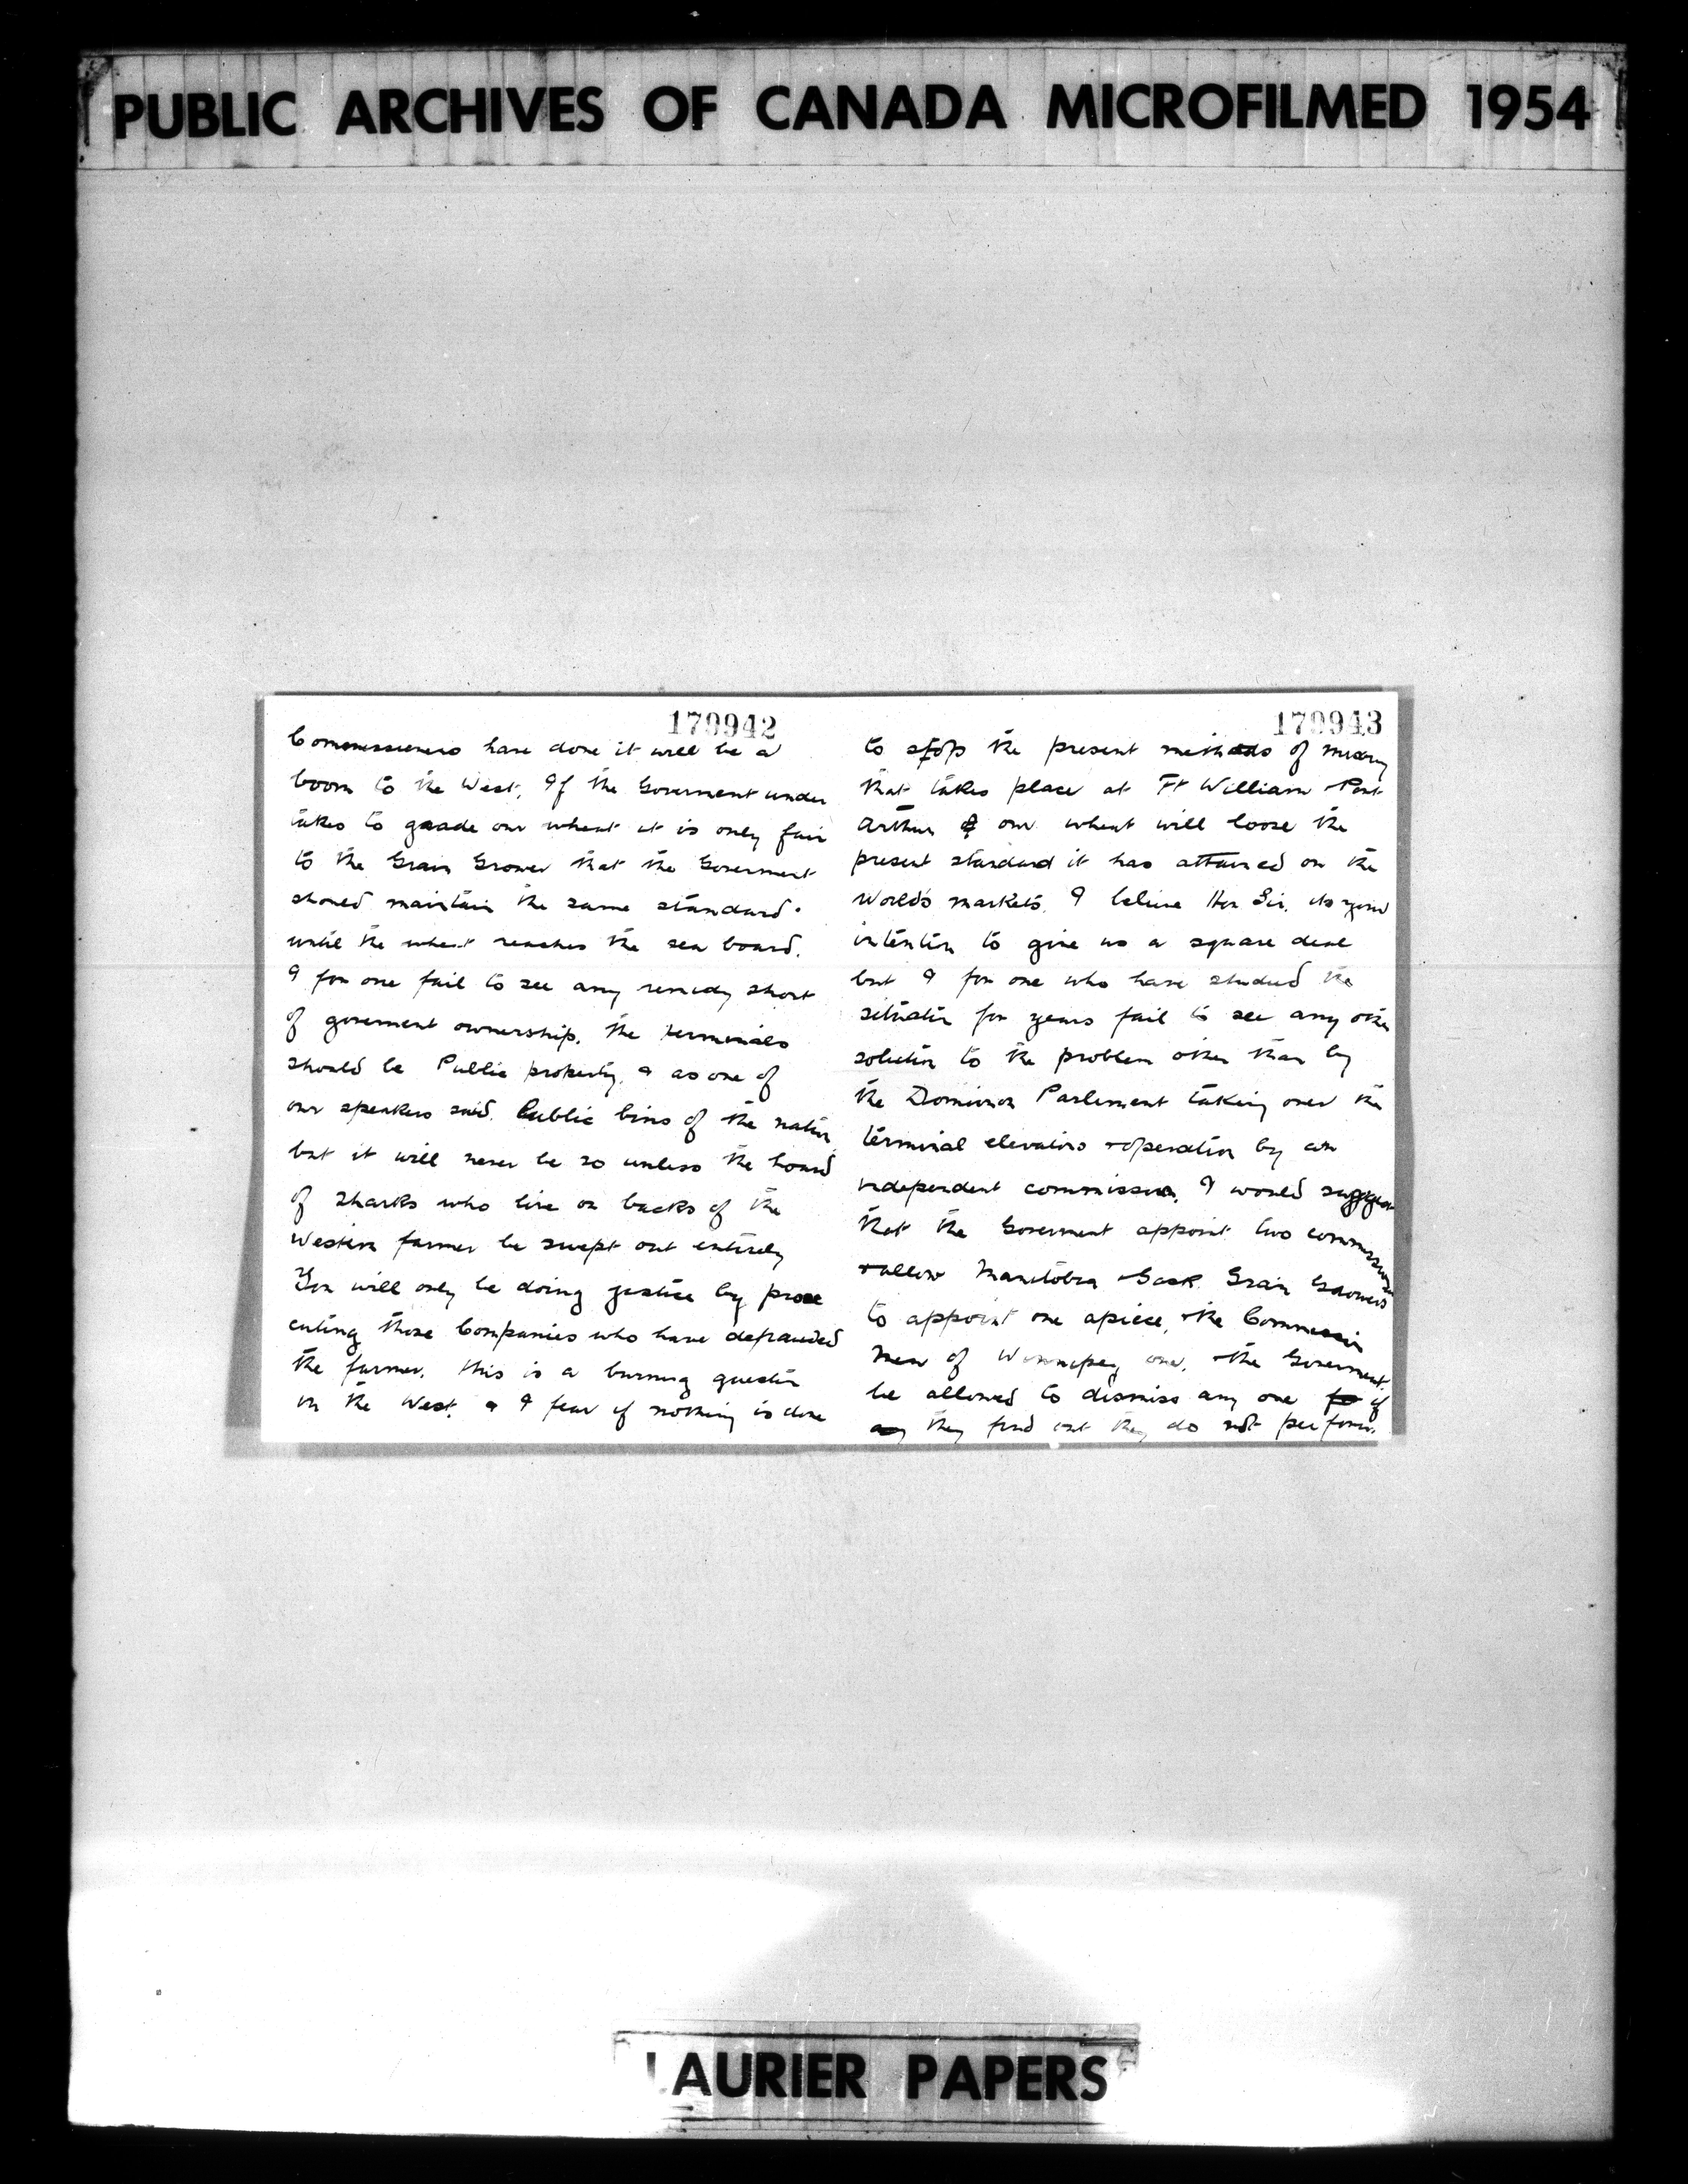 PUBLIC ARCHIVES OF CANADA MICROFILMED 1954
179942
Commissioners have done it will be a
boom to the West. If the Goverment under
takes to graade our wheat it is only fair
to the Grain Grower that the Goverment
shoued maintain the same standard.
until the wheat reaches the sea board.
I for one fail to see any remedy short
of goverment ownership. The terminals
should be Public property, & as one of
our speakers said. Public bins of the nation
but it will never be so unless the hoard
of sharks who live on backs of the
Western farmer be swept out entirely
You will only be doing justice by prose
cuting those Companies who have defrauded
the farmer. This is a burning question
in the West. & I fear if nothing is done
179943
to stop the present methods of mixing
that takes place at Ft William & Port
Arthur our wheat will loose the
present standard it has attained on the
World's markets. I believe Hon Sir. its your
intention to give us a square deal
but I for one who have studied the
situation for years fail to see any other
solution to the problem other than by
the Dominion Parlement taking over the
terminal elevators & operation by an
independent commission. I would suggest
that the Goverment appoint two commissioners
& allow Manitoba & Sask. Grain Growers
to appoint one apiece, & the Commission
Men of Winnipeg one. & the Goverment.
be allowed to dismiss any one if
they find out they do not perform.
LAURIER PAPERS